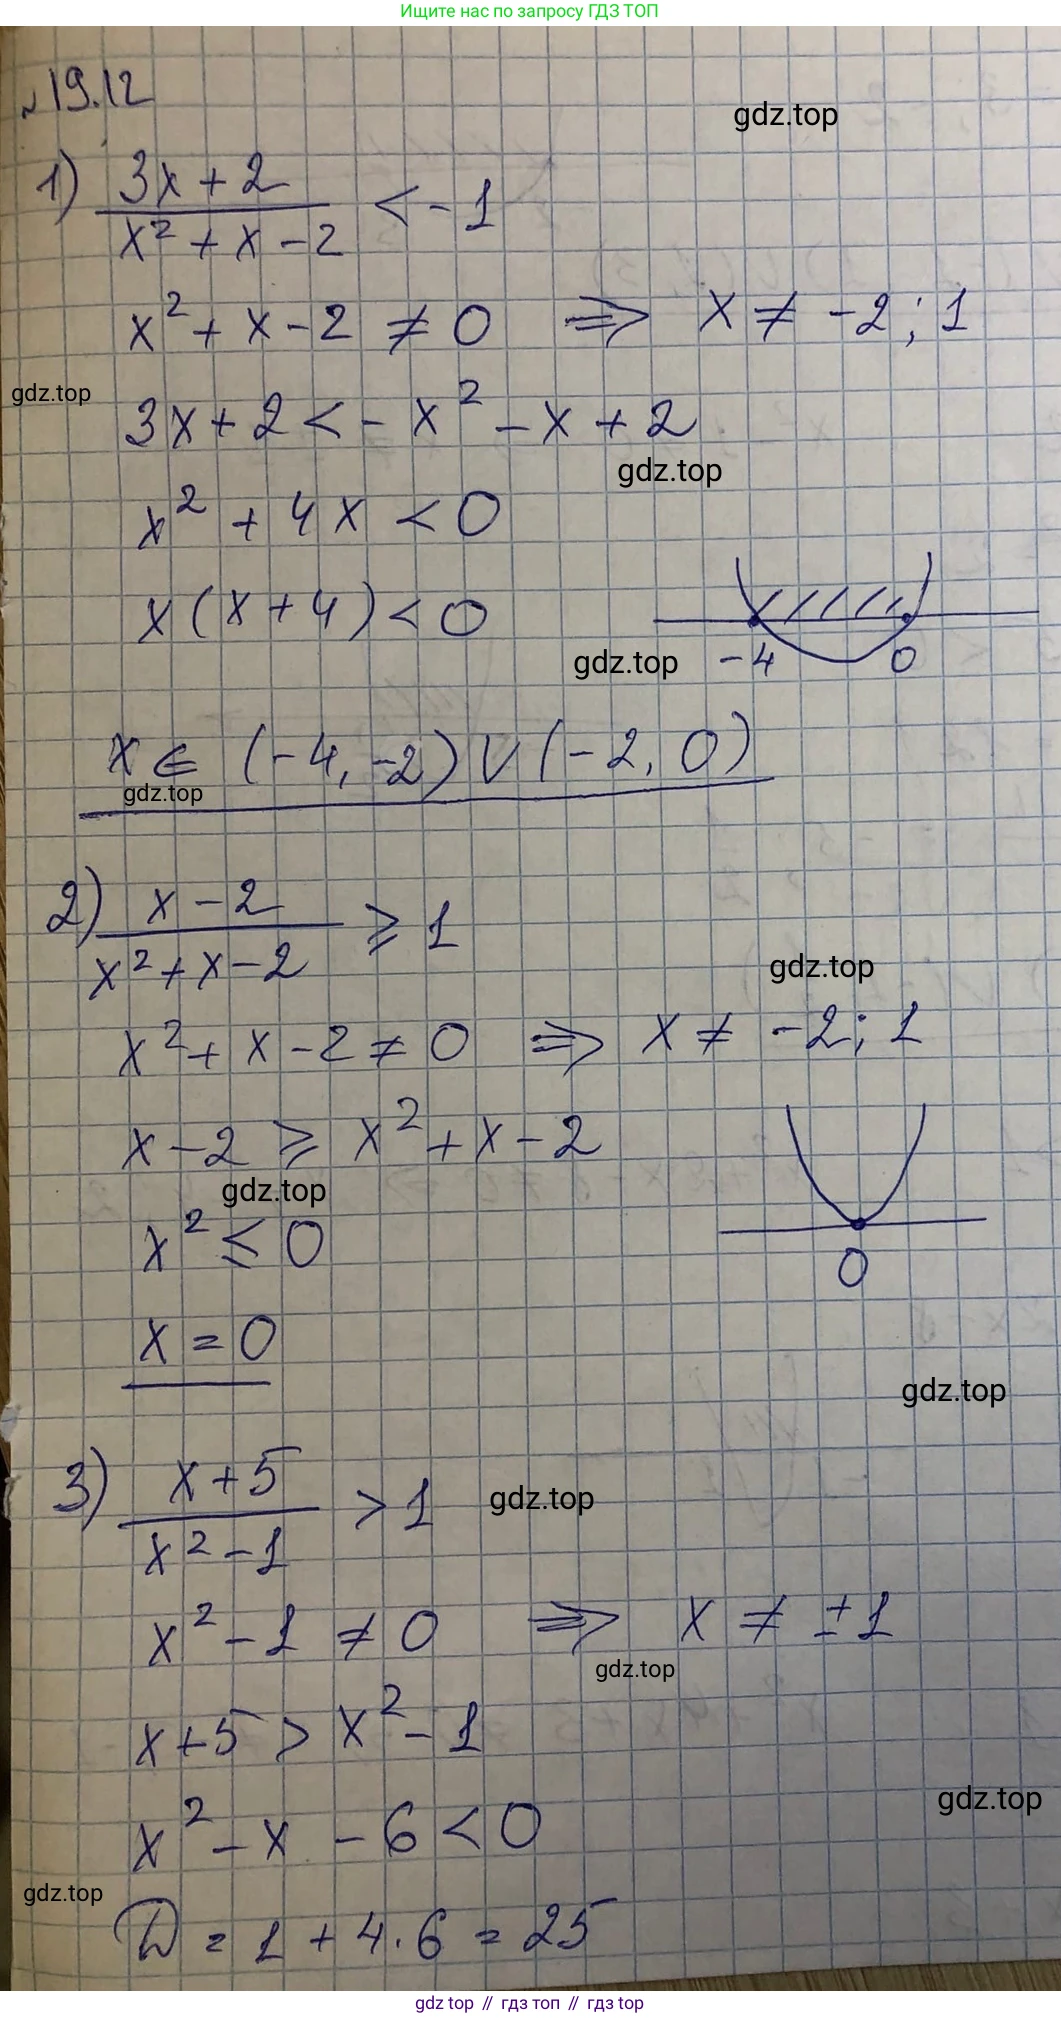 Ищите нас по запросу ГДЗ ТОП
№19.12
gdz.top
1) (3x + 2)/(x² + x - 2) < -1
x² + x - 2 ≠ 0 ⇒ x ≠ -2; 1
gdz.top
3x + 2 < - x² - x + 2
gdz.top
x² + 4x < 0
x(x + 4) < 0
gdz.top
-4 0
x ∈ (-4, -2) ∪ (-2, 0)
gdz.top
2) (x - 2)/(x² + x - 2) ⩾ 1
gdz.top
x² + x - 2 ≠ 0 ⇒ x ≠ -2; 1
x - 2 ⩾ x² + x - 2
gdz.top
x² ⩽ 0
0
x = 0
gdz.top
3) (x + 5)/(x² - 1) > 1
gdz.top
x² - 1 ≠ 0 ⇒ x ≠ ±1
gdz.top
x + 5 > x² - 1
gdz.top
x² - x - 6 < 0
gdz.top
D = 1 + 4·6 = 25
gdz top // гдз топ // gdz top